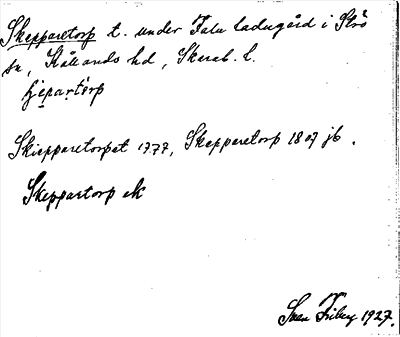 Skepparetorp t. under Tala ladugård i Strö
sn, Kållands hd, Skarab. l.
Skiepparetorpet 1777, Skepparetorp 1807 jb.
Skeppartorp ek
Sven Friberg 1927.